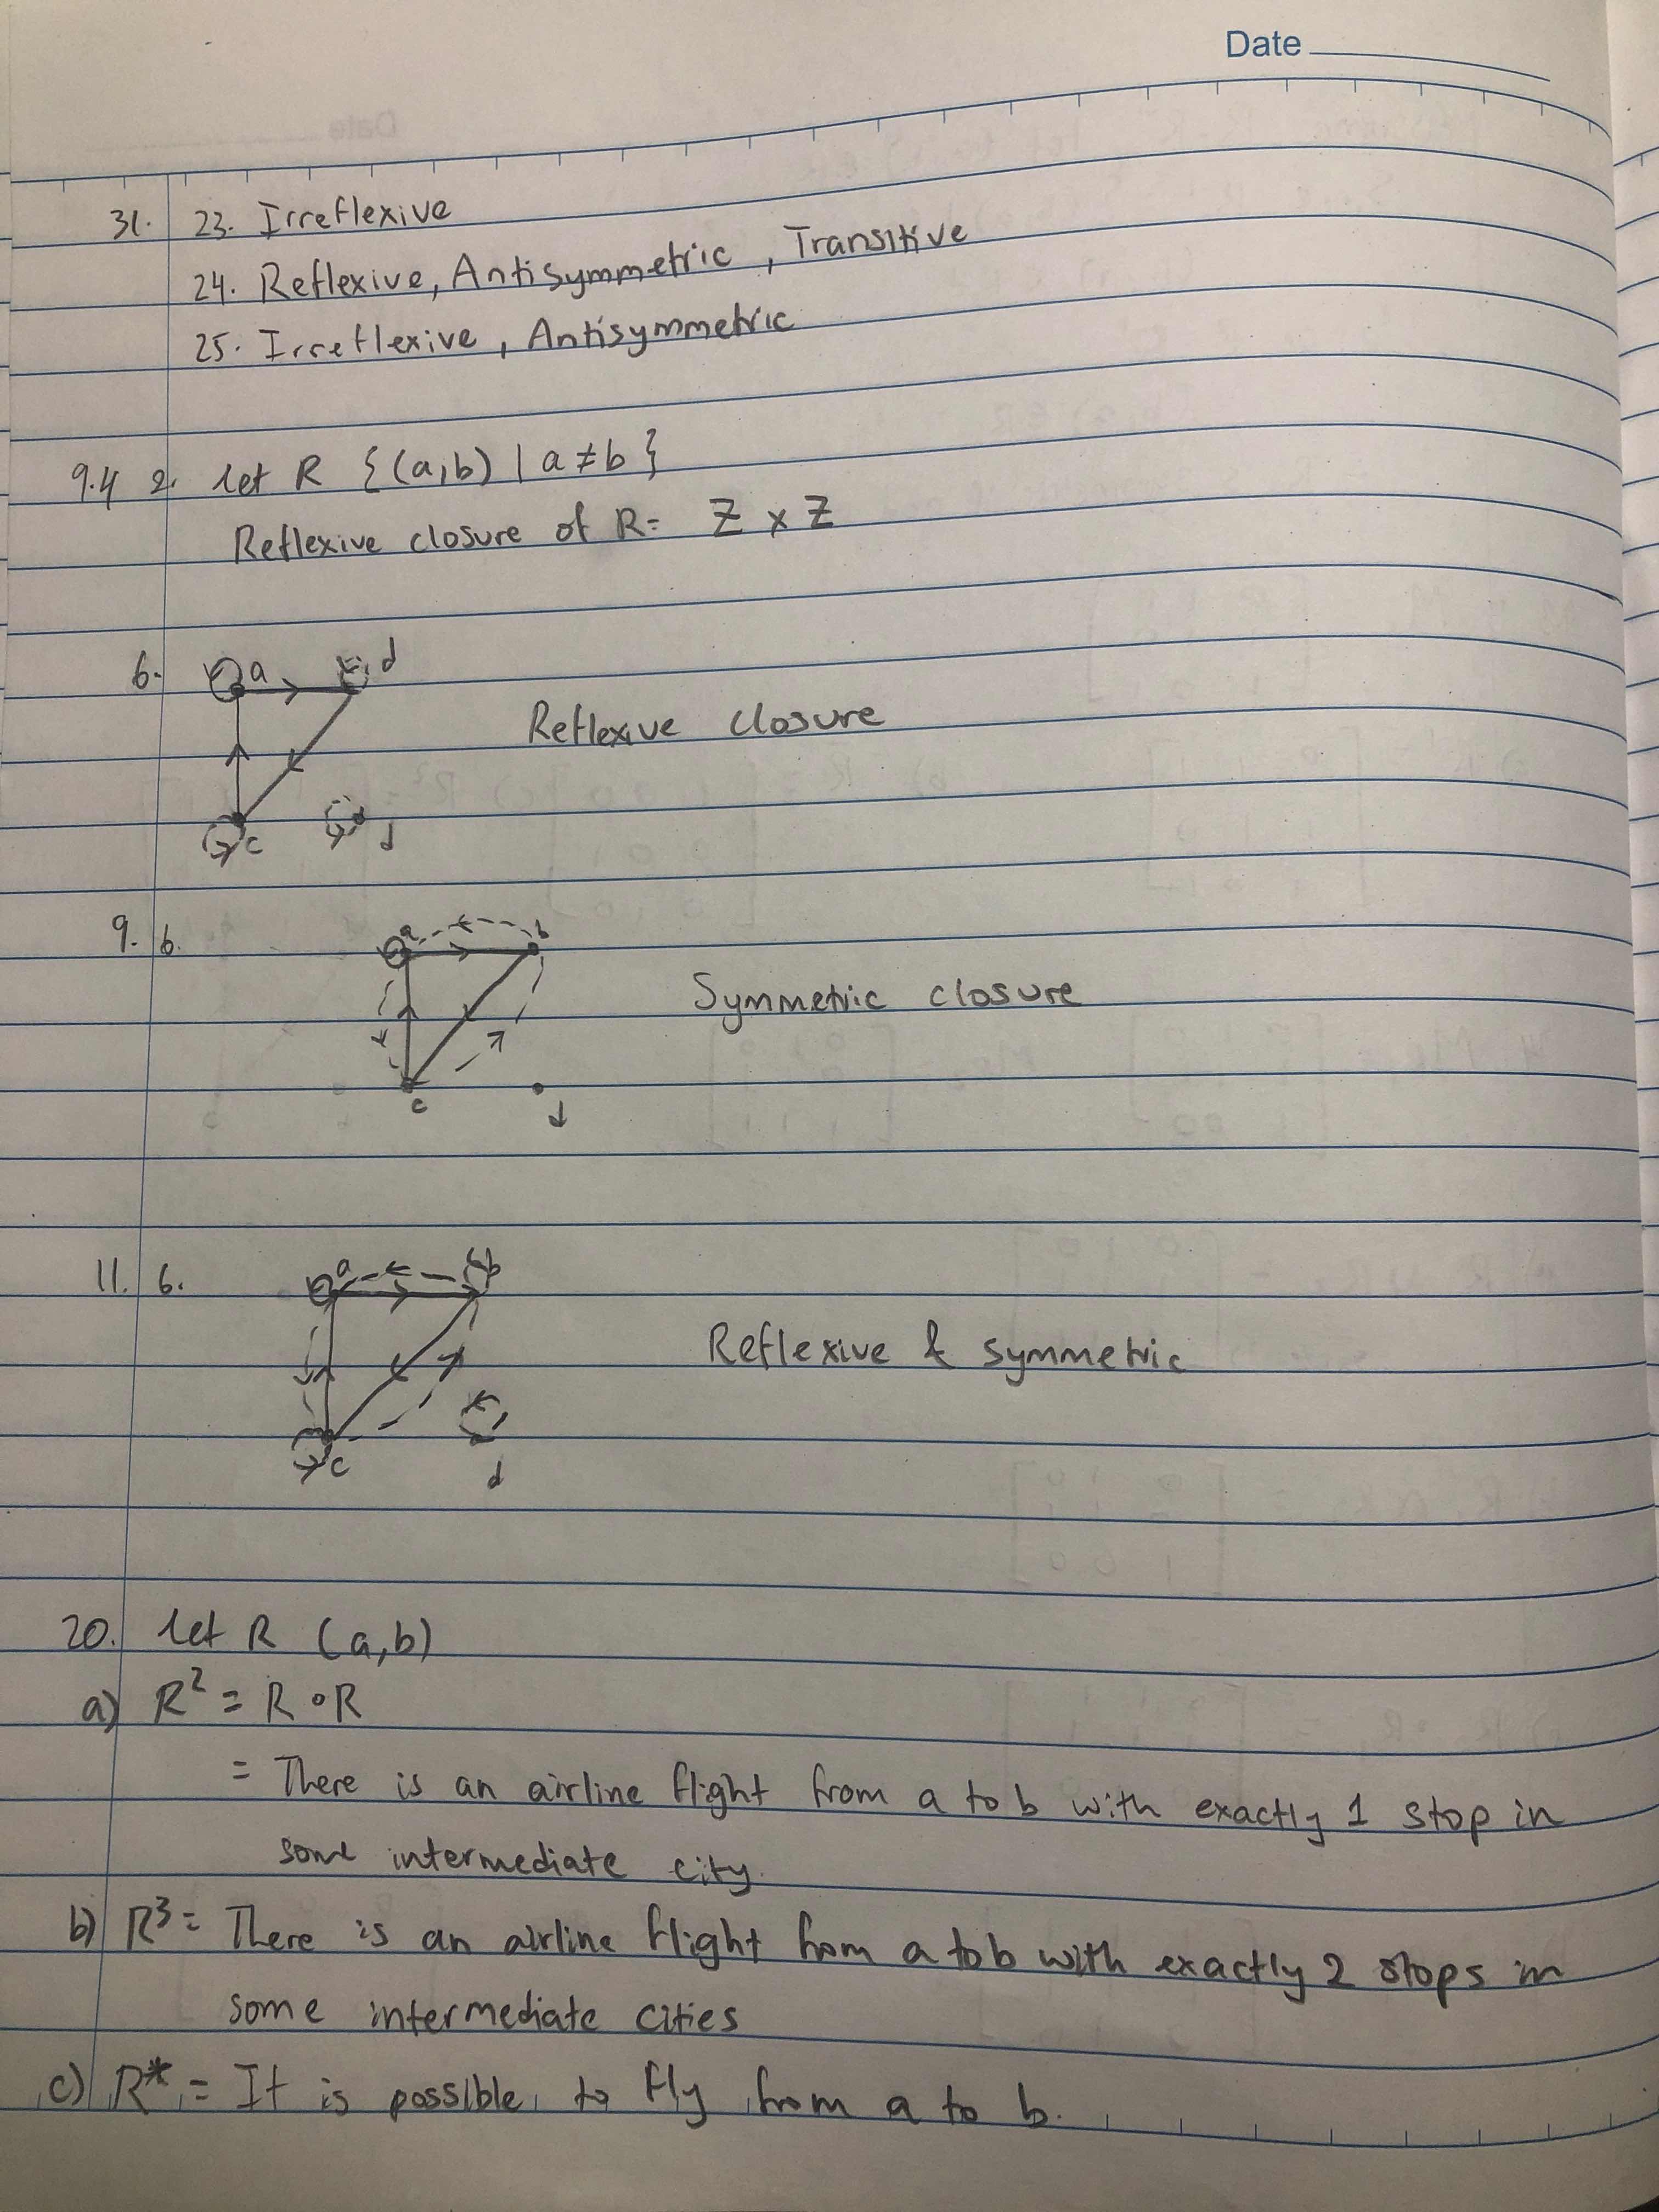 Date
31. 23. Irreflexive
24. Reflexive, Antisymmetric, Transitive
25. Irreflexive, Antisymmetric
9.4 2. let R {(a,b) | a≠b}
Reflexive closure of R= Z x Z
6. a d
Reflexive closure
c d
9. 6. a b
Symmetric closure
c d
11. 6. a b
Reflexive & symmetric
c d
20. let R (a,b)
a) R² = R ∘ R
= There is an airline flight from a to b with exactly 1 stop in
some intermediate city.
b) R³ = There is an airline flight from a to b with exactly 2 stops in
some intermediate cities
c) R* = It is possible to fly from a to b.